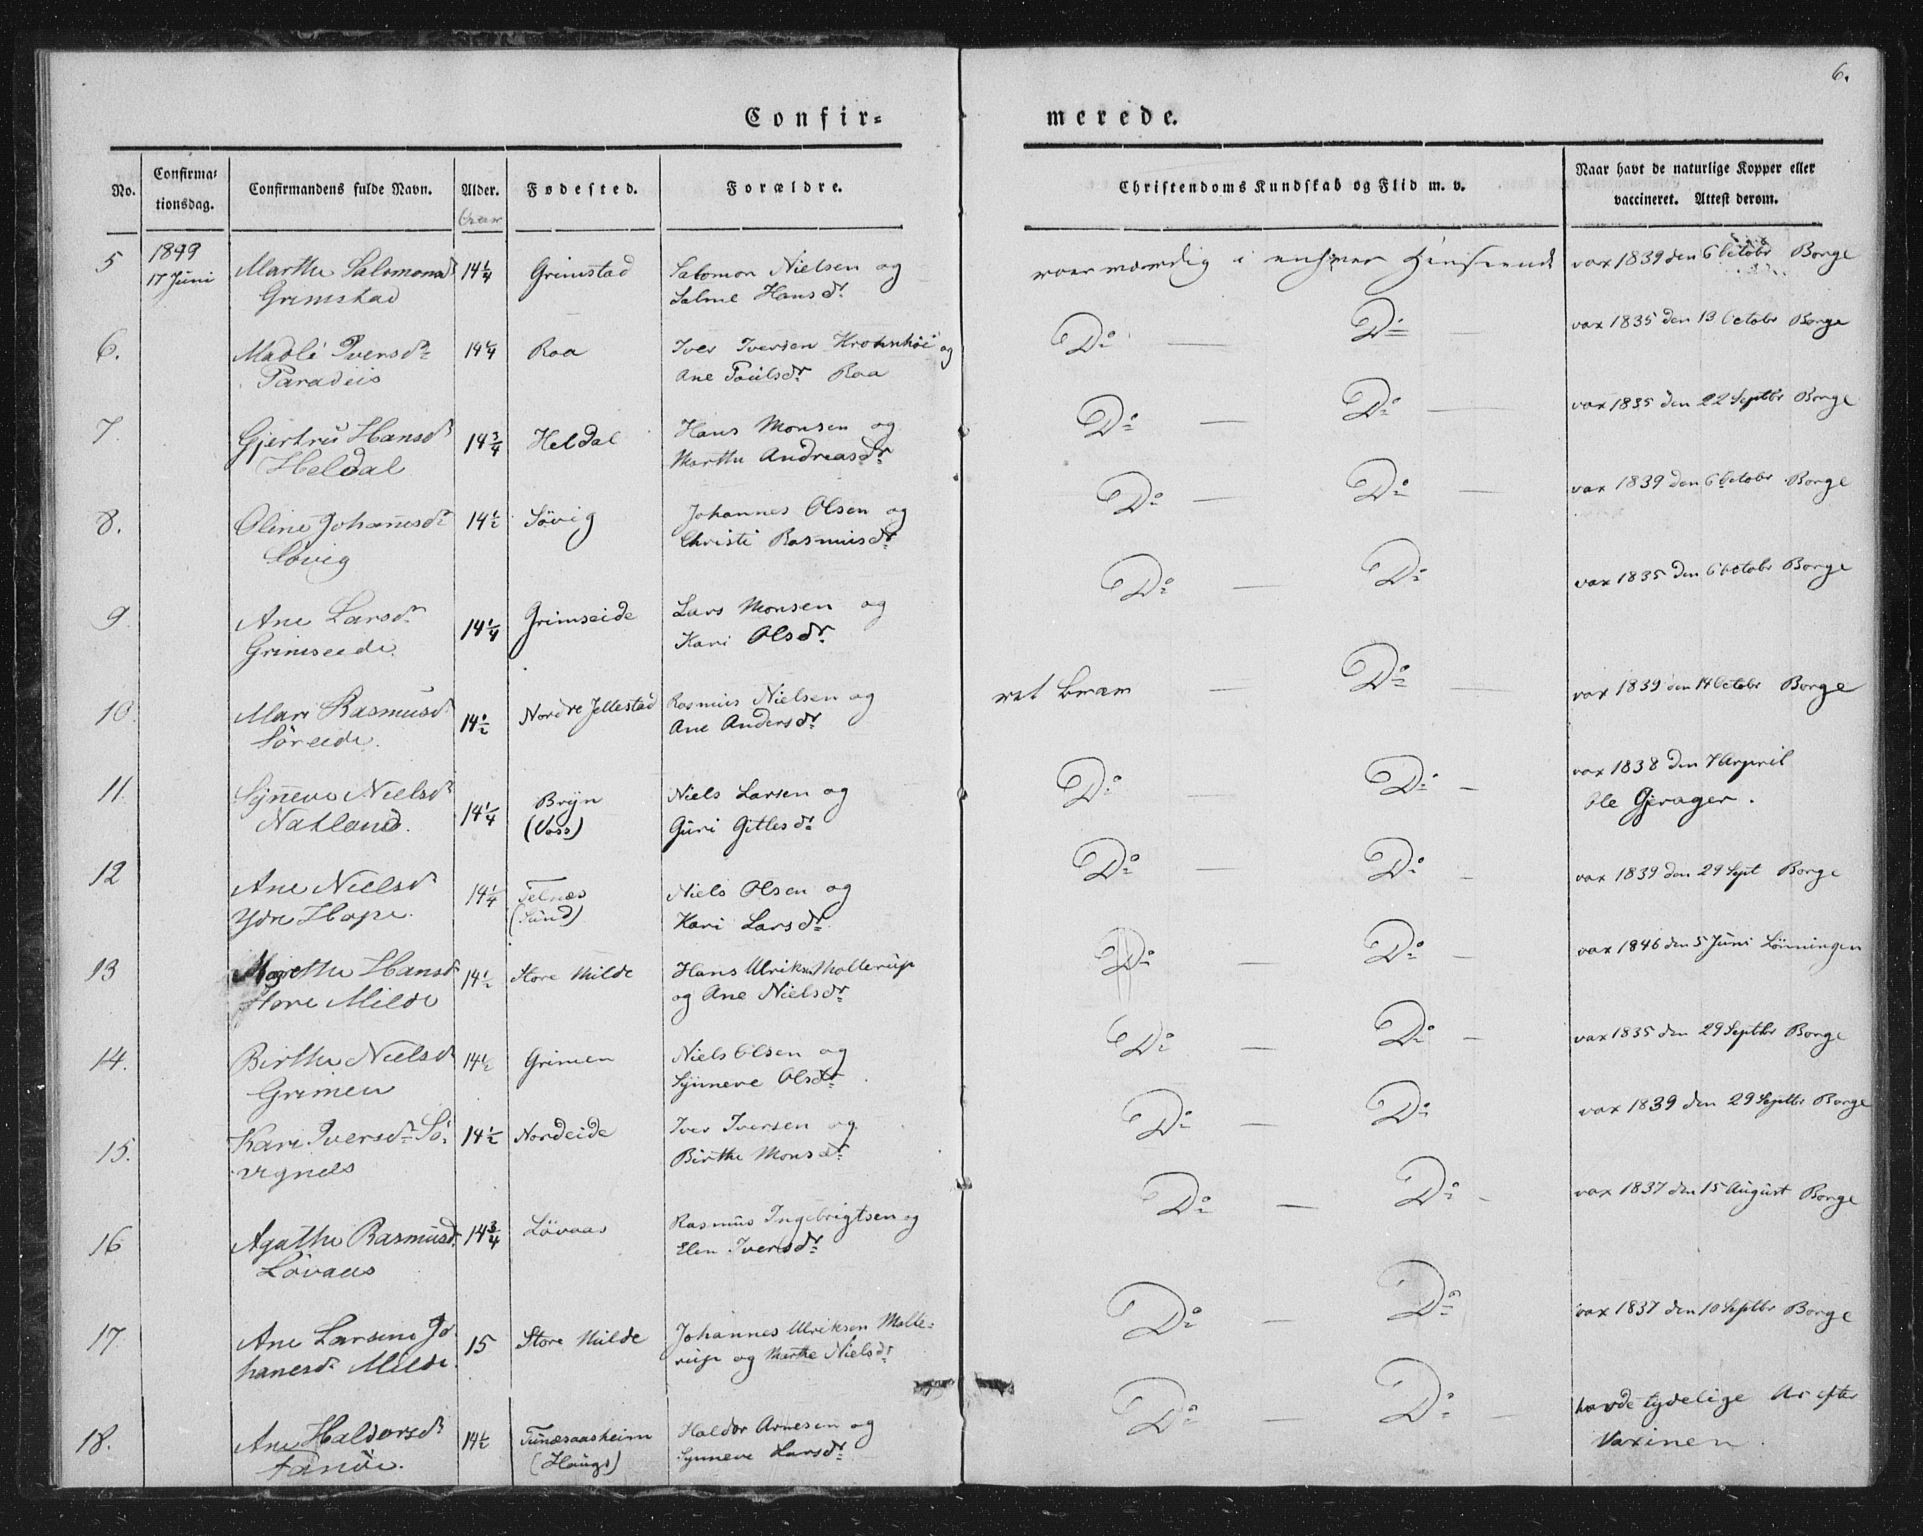 6.
Confir-
merede.
No.
Confirma-
tionsdag.
Confirmandens fulde Navn.
Alder.
Fødested.
Forældre.
Christendoms Kundskab og Flid m. v.
Naar havt de naturlige Kopper eller
vaccineret. Attest derom.
5
1849
17 Juni
Marthe Salomonsdr
Grimstad
14 1/4
Grimstad
Salomon Nielsen og
Salme Hansdr
i enhver Henseende
vax 1839 den 6 Octobr Borge
6.
Madli Iversdr
Paradiis
14 1/4
Raa
Iver Iversen Krohnhöi og
Ane Poulsdr Raa
Do — Do —
vax 1835 den 13 Octobr Borge
7.
Gjertru Hansdr
Heldal
14 3/4
Heldal
Hans Monsen og
Marthe Andreasdr
Do — Do —
vax 1835 den 22 Septbr Borge
8.
Oline Johanesdr
Søvig
14 1/2
Søvig
Johannes Olsen og
Christi Rasmusdr
Do — Do —
vax 1839 den 6 Octobr Borge
9.
Ane Larsdr
Grimseide.
14 1/4
Grimseide
Lars Monsen og
Kari Olsdr
Do — Do
vax 1835 den 6 Octobr Borge
10.
Mari Rasmusdr
Søreide.
14 1/2
Nordre Jellestad
Rasmus Nielsen og
Ane Andersdr
ret brav — Do —
vax 1839 den 14 Octobr Borge
11.
Synneve Nielsdr
Natland.
14 1/4
Bryn
(Voss)
Niels Larsen og
Guri Gitlesdr
Do — Do —
vax 1838 den 7 April
Ole Gjerager.
12
Ane Nielsdr
Ydre Hope.
14 1/4
Telnæs
(Sund)
Niels Olsen og
Kari Larsdr
Do — Do —
vax 1839 den 29 Sept Borge
13
Magrethe Hansdr
Store Milde
14 1/2
Store Milde
Hans Ulriksen Mollerup
og Ane Nielsdr
Do — Do —
vax 1846 den 5 Juni Lönningen
14.
Birthe Nielsdr
Grimen
14 1/2
Grimen
Niels Olsen og
Synneve Olsdr
Do — Do —
vax 1835 den 29 Septbr Borge
15.
Kari Iversdr Sö-
vignes
14 1/2
Nordeide
Iver Iversen og
Birthe Monsdr
Do — Do
vax 1839 den 29 Septbr Borge
16
Agathe Rasmusdr
Lövaas
14 3/4
Lövaas
Rasmus Ingebrigtsen og
Elen Iversdr
Do — Do —
vax 1837 den 15 August Borge
17.
Ane Larsine Jo-
hanesdr Milde.
15
Store Milde
Johannes Ulriksen Molle-
rup og Marthe Nielsdr
Do — Do
vax 1837 den 10 Septbr Borge
18.
Ane Haldorsdr
Fanöe.
14 1/2
(Haugs)
Haldor Arnesen og
Synneve Larsdr
Do — Do —
havde tydelige Ar efter
Vaxinen.